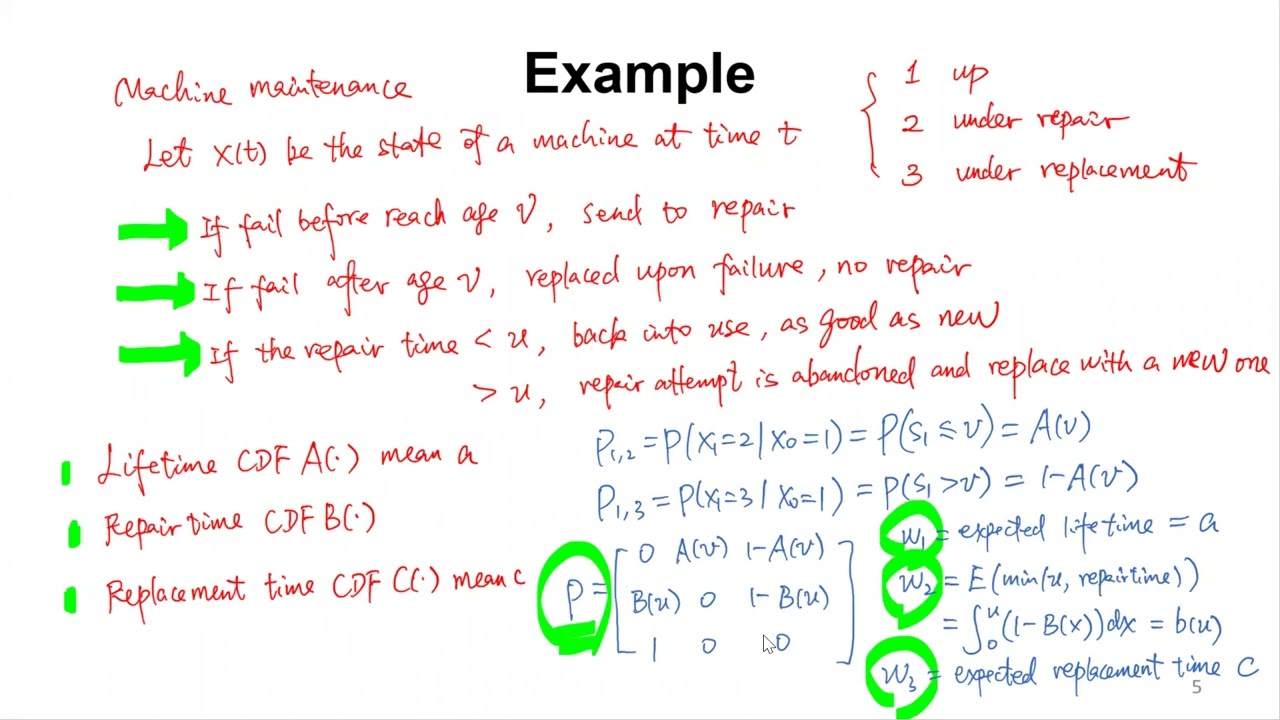 Example
Machine maintenance
Let X(t) be the state of a machine at time t
{ 1 up
2 under repair
3 under replacement
If fail before reach age v, send to repair
If fail after age v, replaced upon failure, no repair
If the repair time < u, back into use, as good as new
> u, repair attempt is abandoned and replace with a new one
Lifetime CDF A(·) mean a
Repair time CDF B(·)
Replacement time CDF C(·) mean c
P1,2 = P(X1=2 | X0=1) = P(S1 ≤ v) = A(v)
P1,3 = P(X1=3 | X0=1) = P(S1 > v) = 1-A(v)
P = [ 0 A(v) 1-A(v)
B(u) 0 1-B(u)
1 0 0 ]
w1 = expected lifetime = a
w2 = E(min(u, repair time))
= ∫0^u (1-B(x))dx = b(u)
w3 = expected replacement time c
5